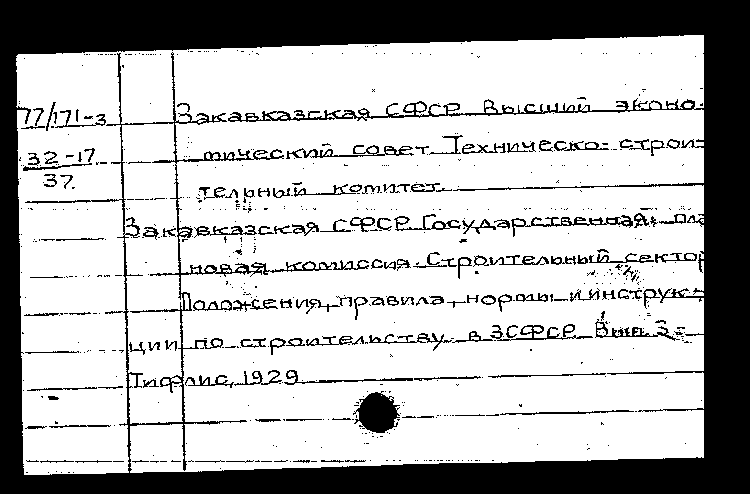 77/171-3 Закавказская СФСР Высший эконо-
32-17 мический совет. Техническо-строи-
37. тельный комитет.
Закавказская СФСР Государственная пла
новая комиссия. Строительный сектор
Положения, правила, нормы и инструк-
ции по строительству в ЗСФСР Вып. 3-
Тифлис, 1929